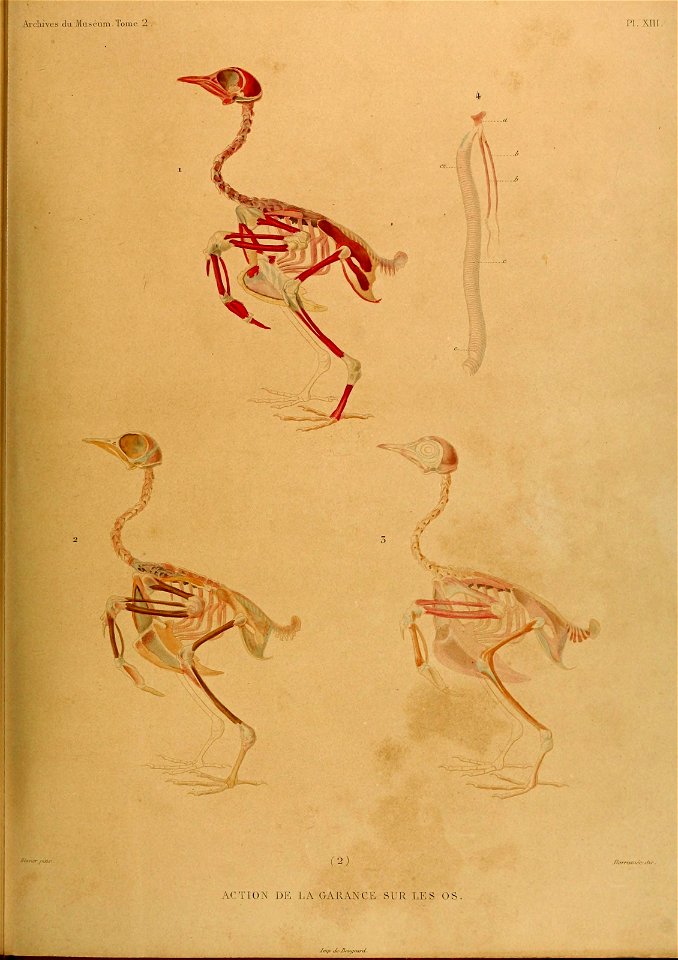 Archives du Muséum. Tome 2.
Pl. XIII.
4
a
1
b
b
c
2
3
(2)
ACTION DE LA GARANCE SUR LES OS.
Imp. de Bougeard.